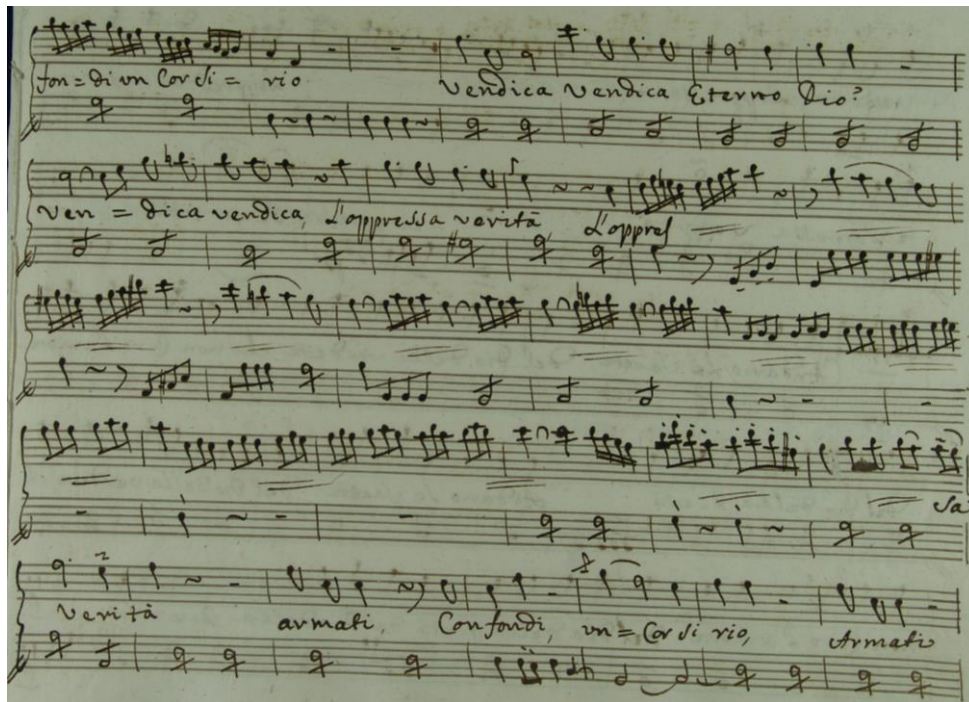 fon = di un Cor si = rio vendica vendica Eterno Dio?
ven = dica vendica, L'oppressa verità L'oppres
sa
verità armati, Confondi, un = Cor si rio, Armati